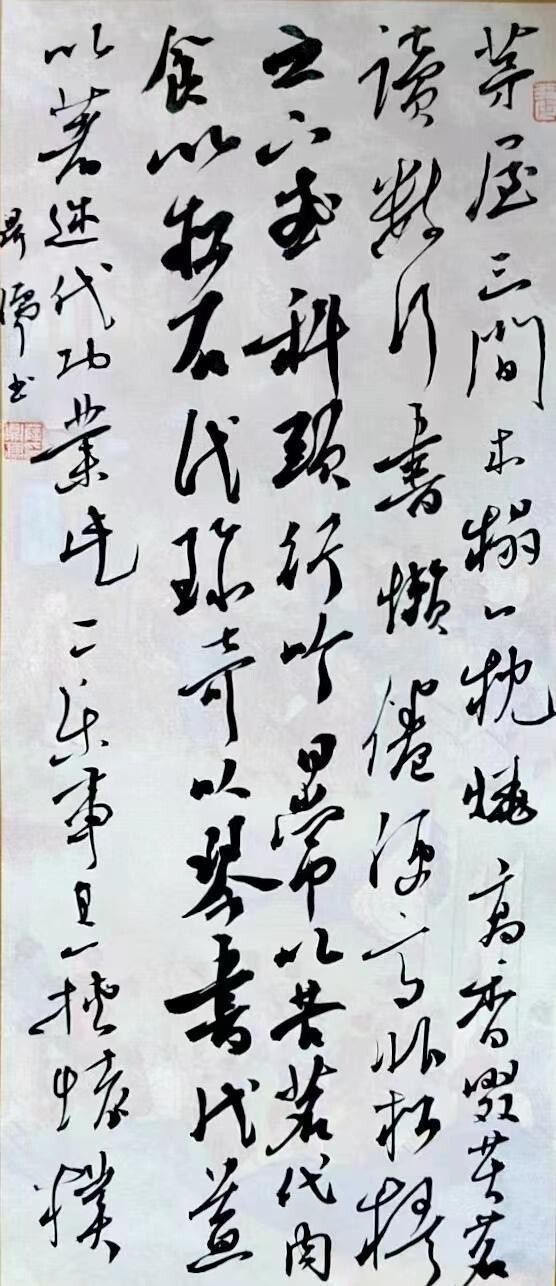 茅屋三間木榻一枕燒高香啜苦茗
讀數行書懶倦便高卧松梧
之下或科頭行吟日常以苦茗代肉
食以松石代珍奇以琴書代益
以著述代功業此亦樂事
书